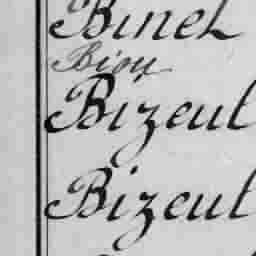 Binet
Bioy
Bizeul
Bizeul